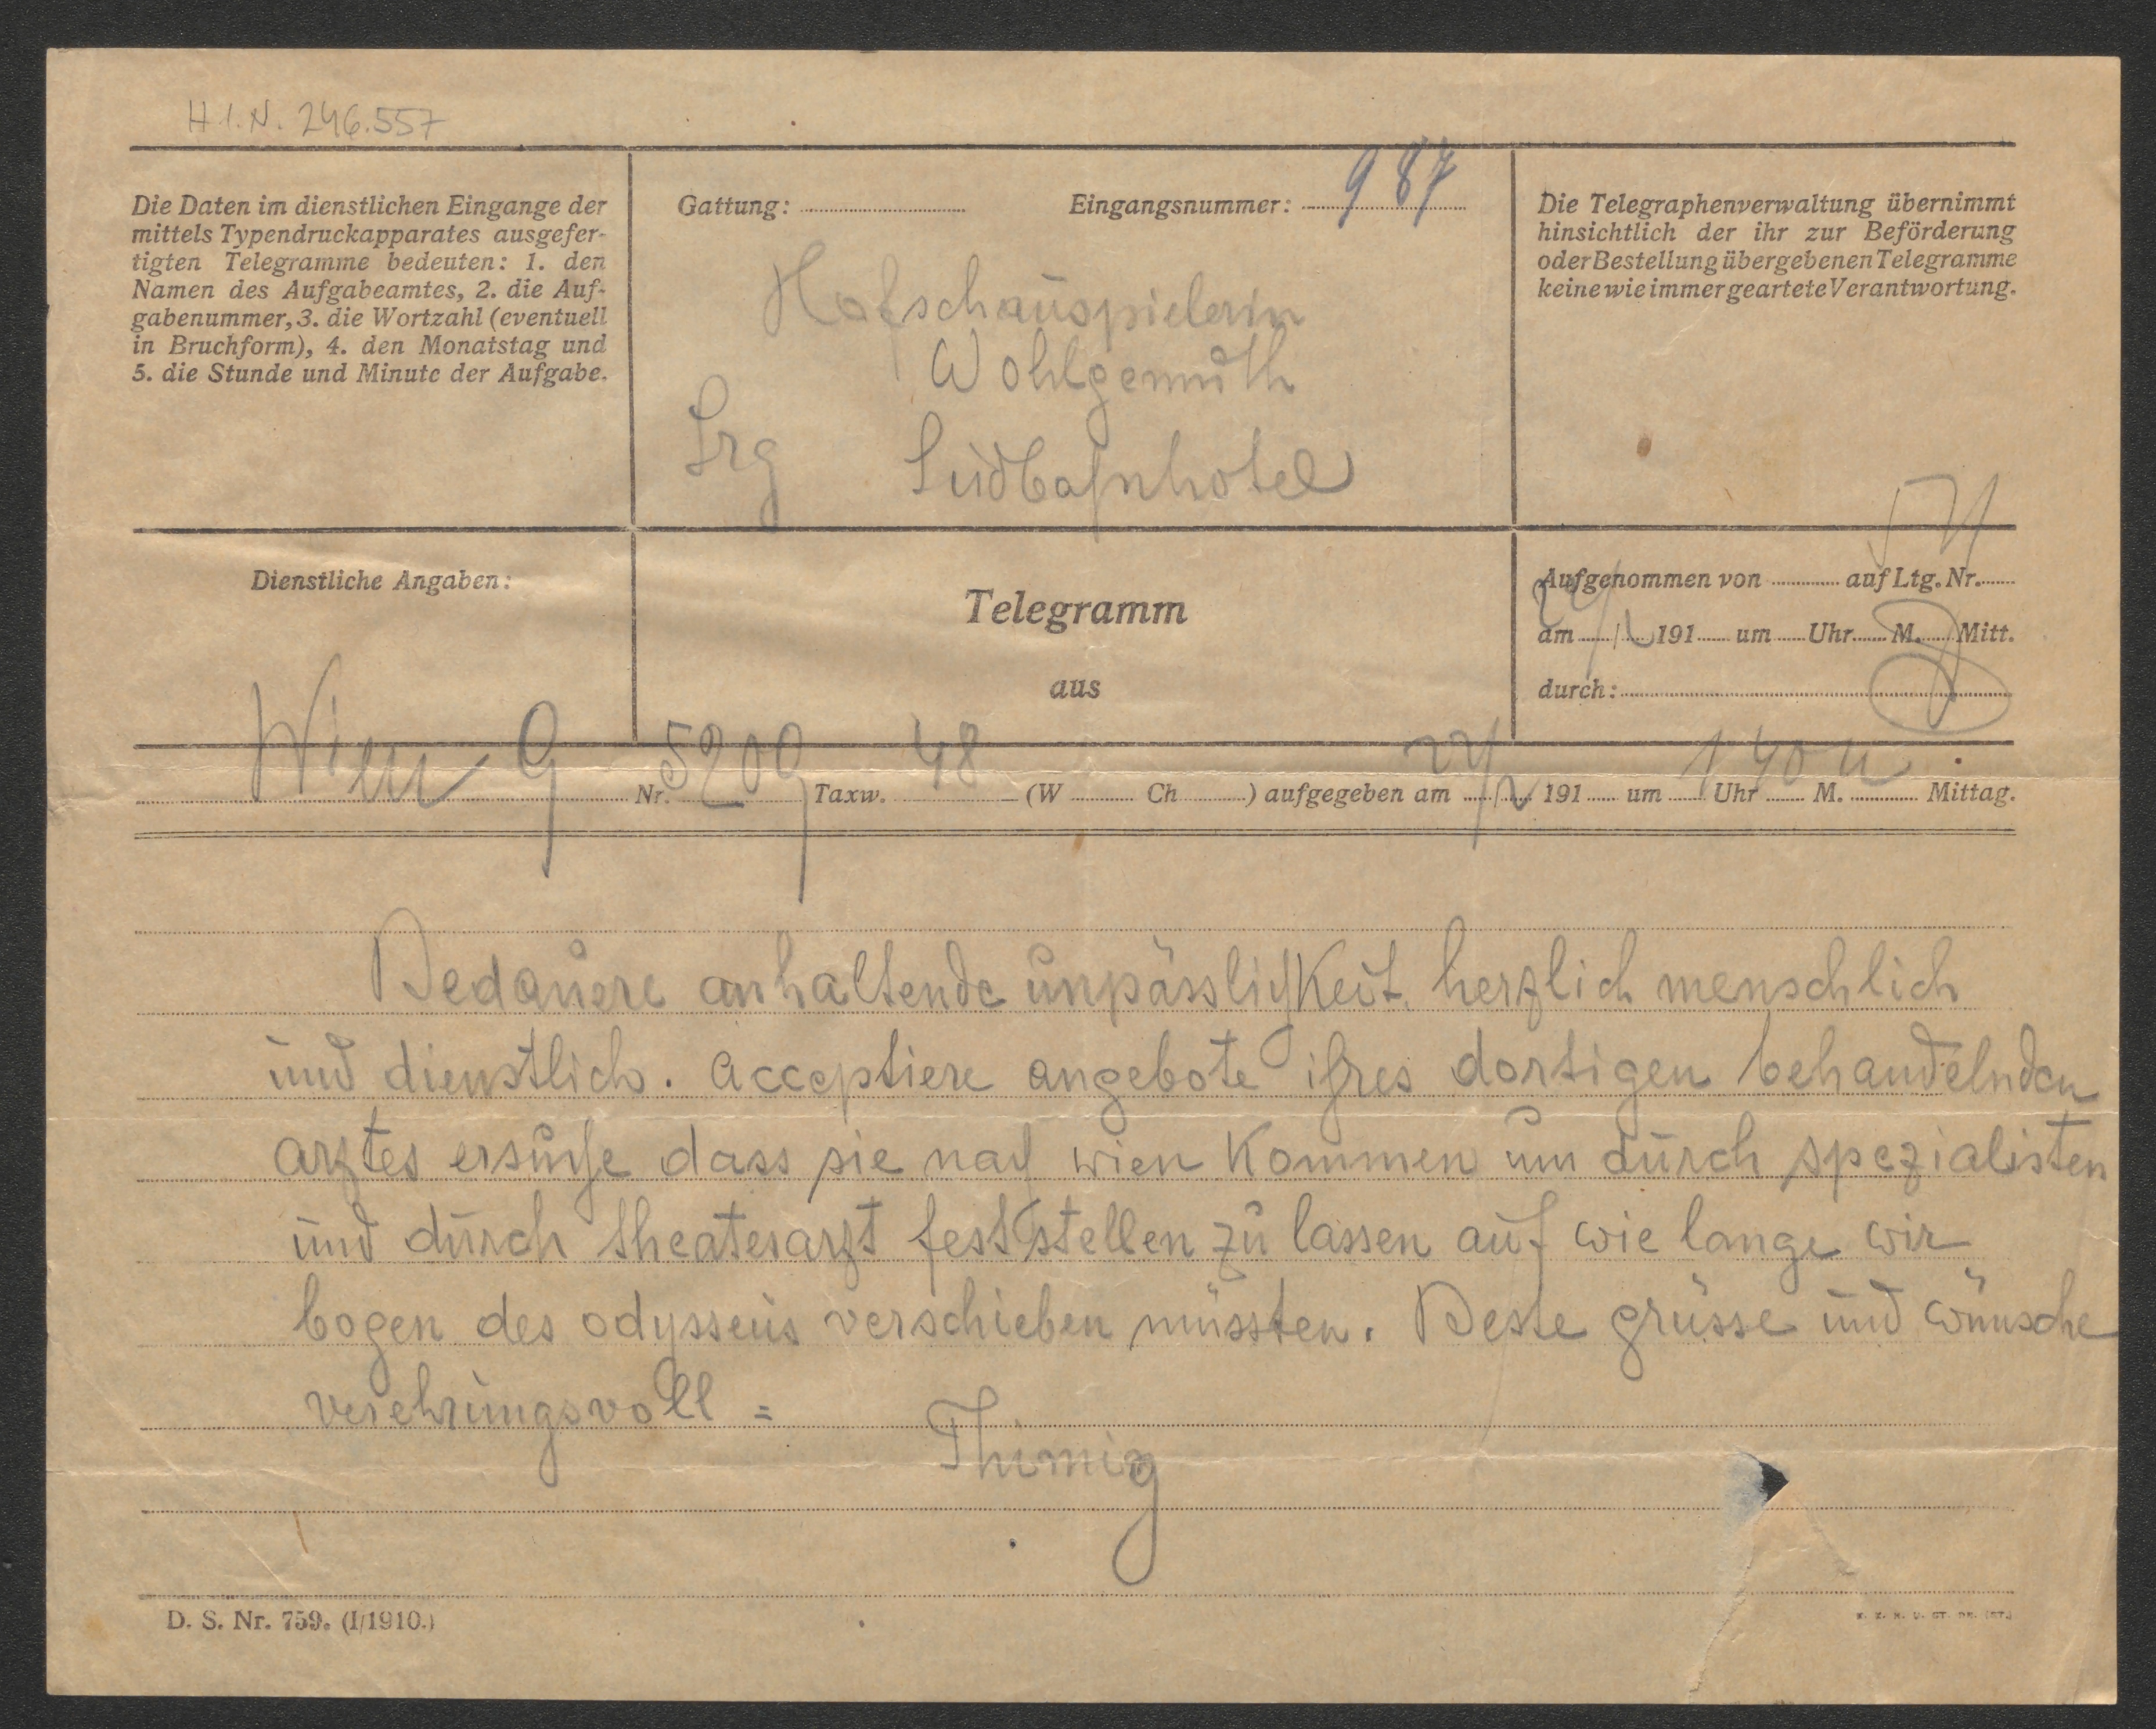 H.I.N. 246.557
Die Daten im dienstlichen Eingange der
mittels Typendruckapparates ausgefer-
tigten Telegramme bedeuten: 1. den
Namen des Aufgabeamtes, 2. die Auf-
gabenummer, 3. die Wortzahl (eventuell
in Bruchform), 4. den Monatstag und
5. die Stunde und Minute der Aufgabe.
Gattung: Eingangsnummer: 987
Hofschauspielerin
Wohlgemuth
Srg Südbahnhotel
Die Telegraphenverwaltung übernimmt
hinsichtlich der ihr zur Beförderung
oder Bestellung übergebenen Telegramme
keine wie immer geartete Verantwortung.
Dienstliche Angaben:
Telegramm
aus
Aufgenommen von auf Ltg. Nr.
am 191 um Uhr M. Mitt.
durch:
Wien 9 Nr. 5209 Taxw. 48 (W Ch ) aufgegeben am 24/2 191 um 1 40 Uhr M. Mittag.
Bedauere anhaltende unpässlichkeit herzlich menschlich
und dienstlich. acceptiere angebote ihres dortigen behandelnden
arztes ersuche dass sie nach wien kommen um durch spezialisten
und durch theaterarzt feststellen zu lassen auf wie lange wir
bogen des odysseus verschieben müssten. Beste grüsse und wünsche
verehrungsvoll =
Thimig
D. S. Nr. 759. (I/1910.)